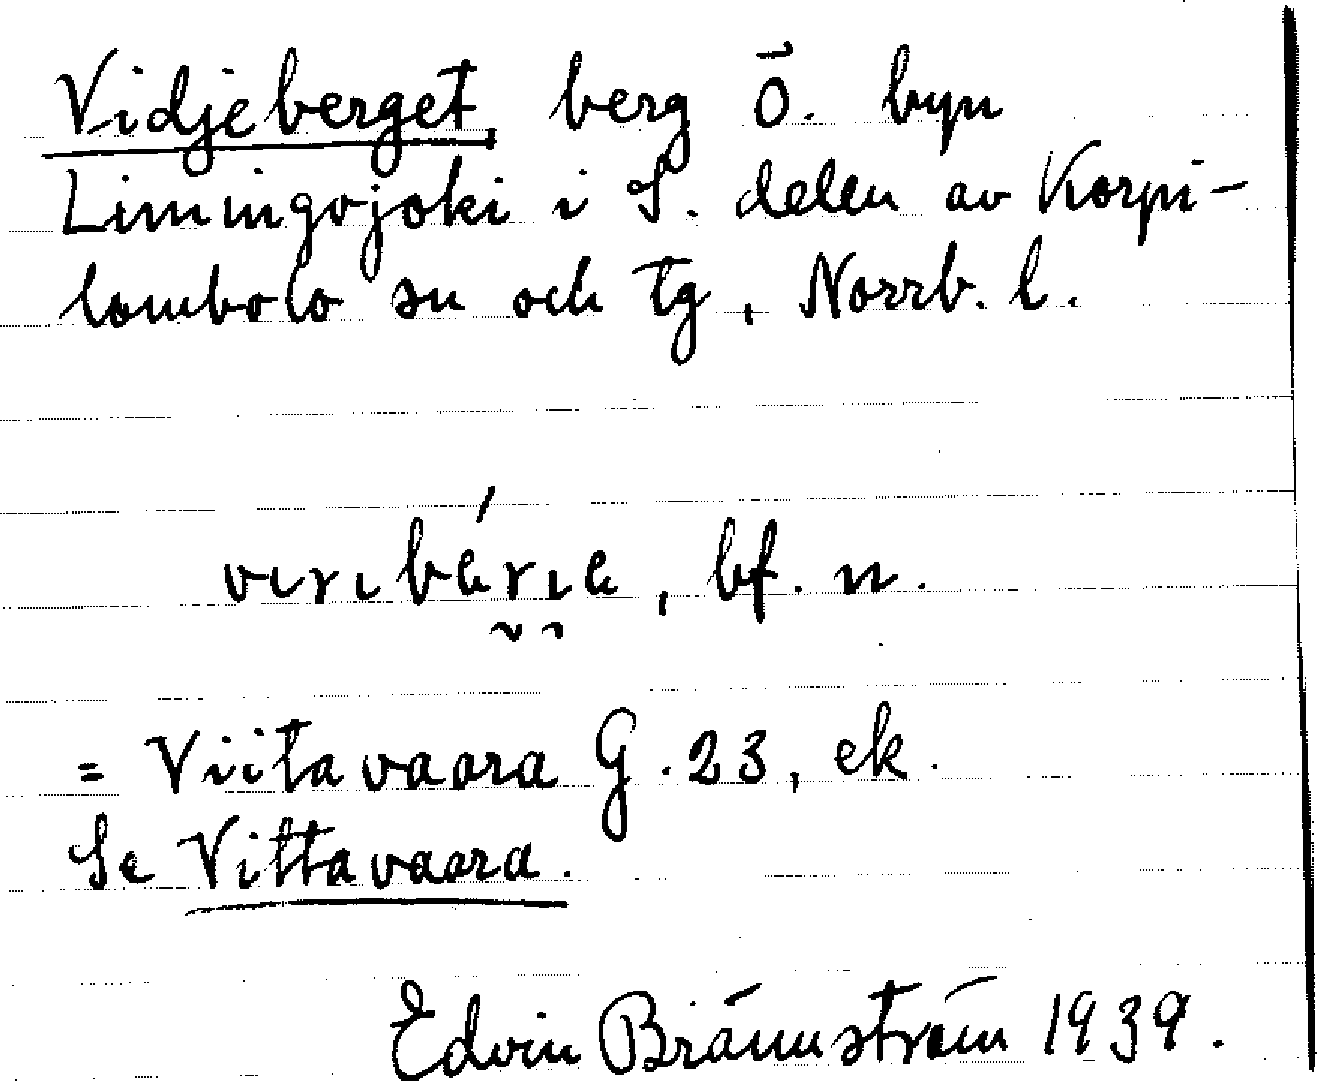 Vidjeberget, berg Ö. byn
Limingojoki i S. delen av Korpi-
lombolo sn och tg, Norrb. l.
, bf. n.
= Viitavaara G. 23, ek.
Se Vittavaara.
Edvin Brännström 1939.